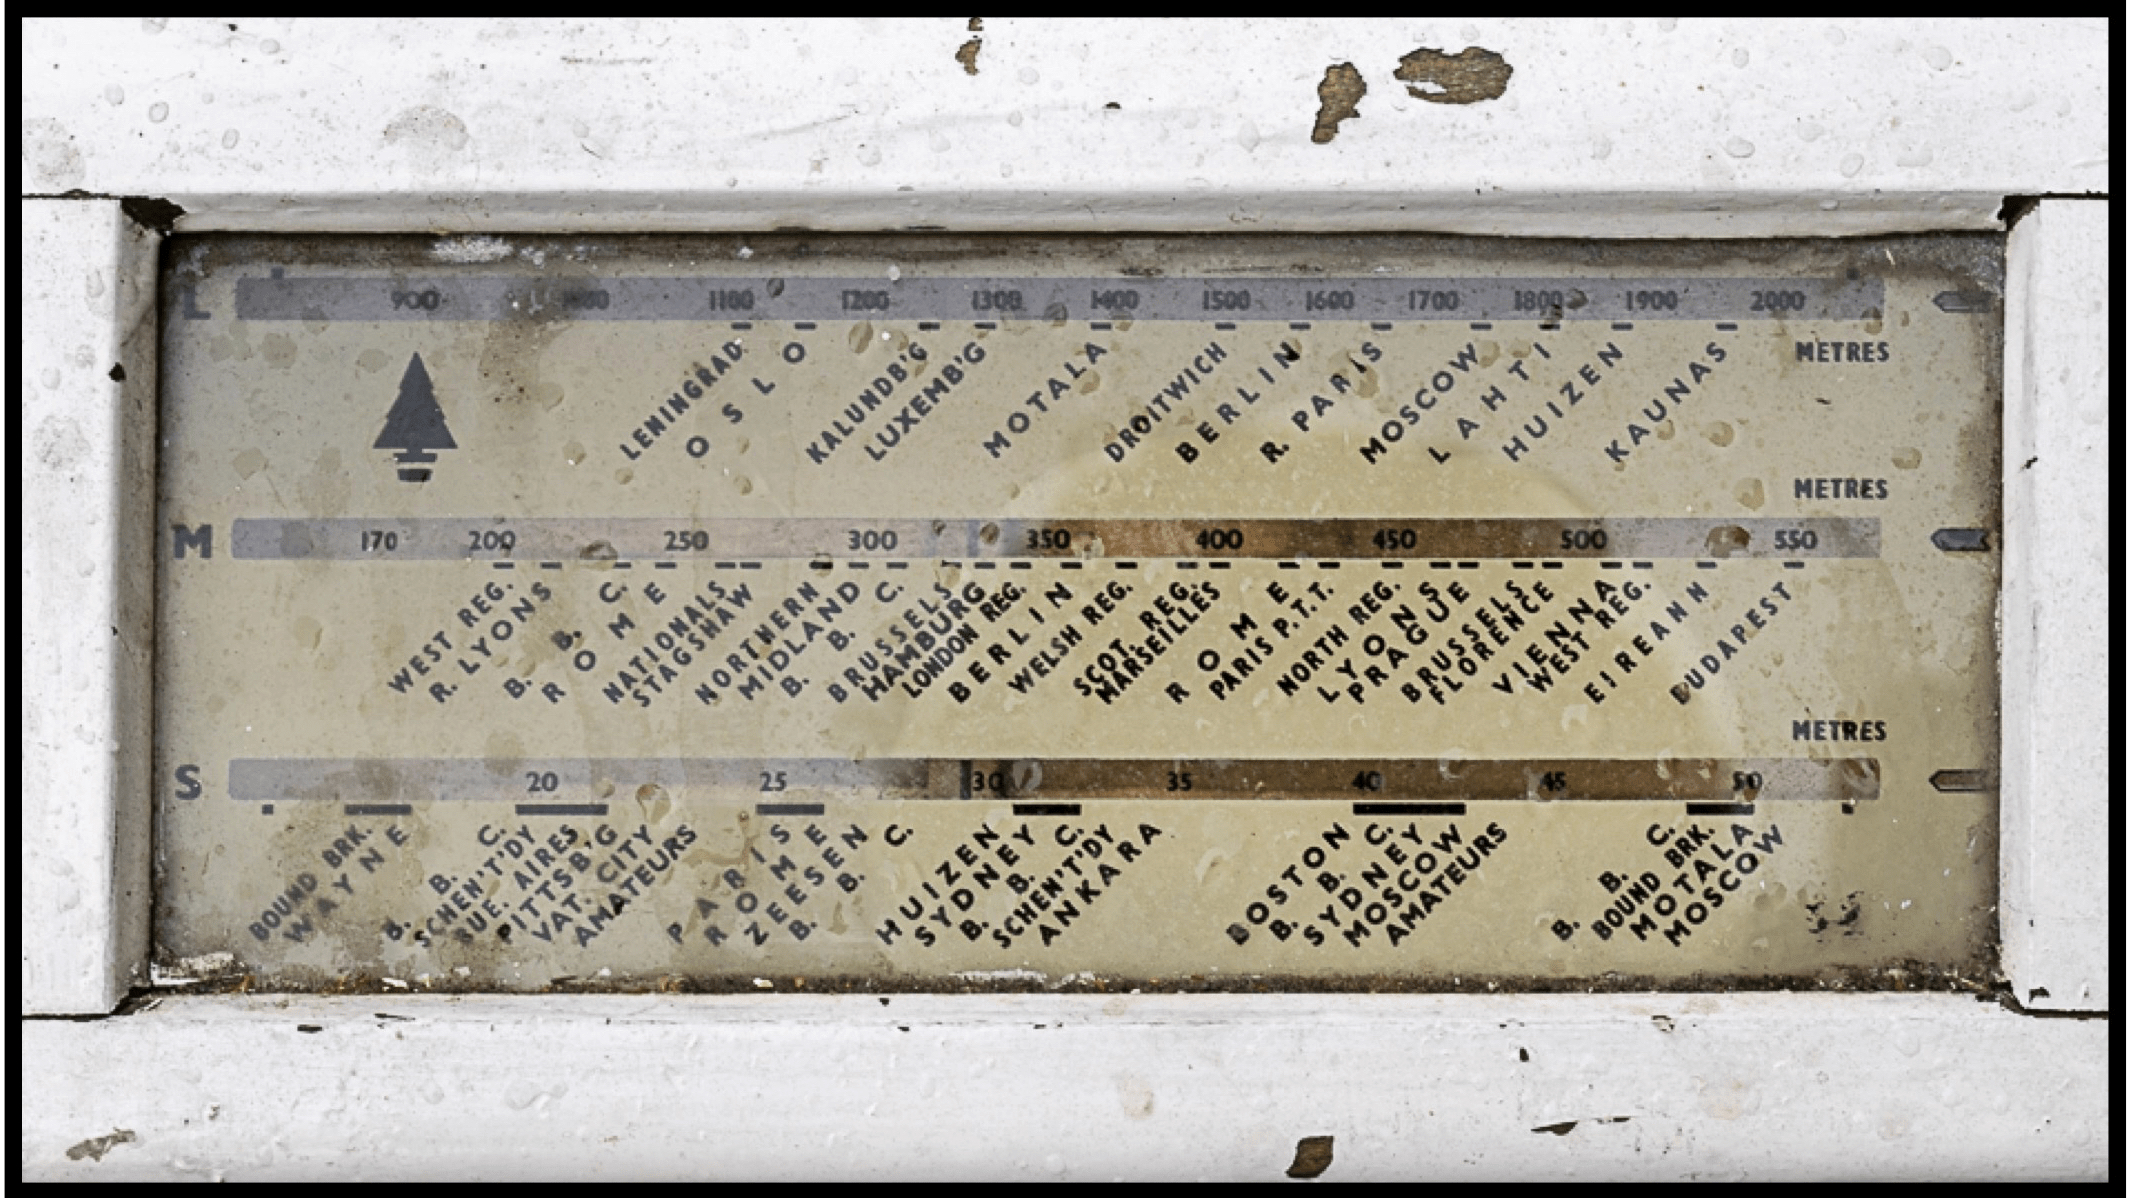 L 900 1000 1100 1200 1300 1400 1500 1600 1700 1800 1900 2000
METRES
LENINGRAD
OSLO
KALUNDB'G
LUXEMB'G
MOTALA
DROITWICH
BERLIN
R. PARIS
MOSCOW
LAHTI
HUIZEN
KAUNAS
METRES
M 170 200 250 300 350 400 450 500 550
WEST REG.
R. LYONS
B. B. C.
ROME
NATIONALS
STAGSHAW
NORTHERN
MIDLAND
B. B. C.
BRUSSELS
HAMBURG
LONDON REG.
BERLIN
WELSH REG.
SCOT. REG.
MARSEILLES
ROME
PARIS P.T.T.
NORTH REG.
LYONS
PRAGUE
BRUSSELS
FLORENCE
VIENNA
WEST REG.
EIREANN
BUDAPEST
METRES
S 20 25 30 35 40 45 50
BOUND BRK.
WAYNE
B. B. C.
SCHEN'T'DY
BUE. AIRES
PITTSB'G
VAT. CITY
AMATEURS
PARIS
ROME
ZEESEN
B. B. C.
HUIZEN
SYDNEY
B. B. C.
SCHEN'T'DY
ANKARA
BOSTON
B. B. C.
SYDNEY
MOSCOW
AMATEURS
B. B. C.
BOUND BRK.
MOTALA
MOSCOW